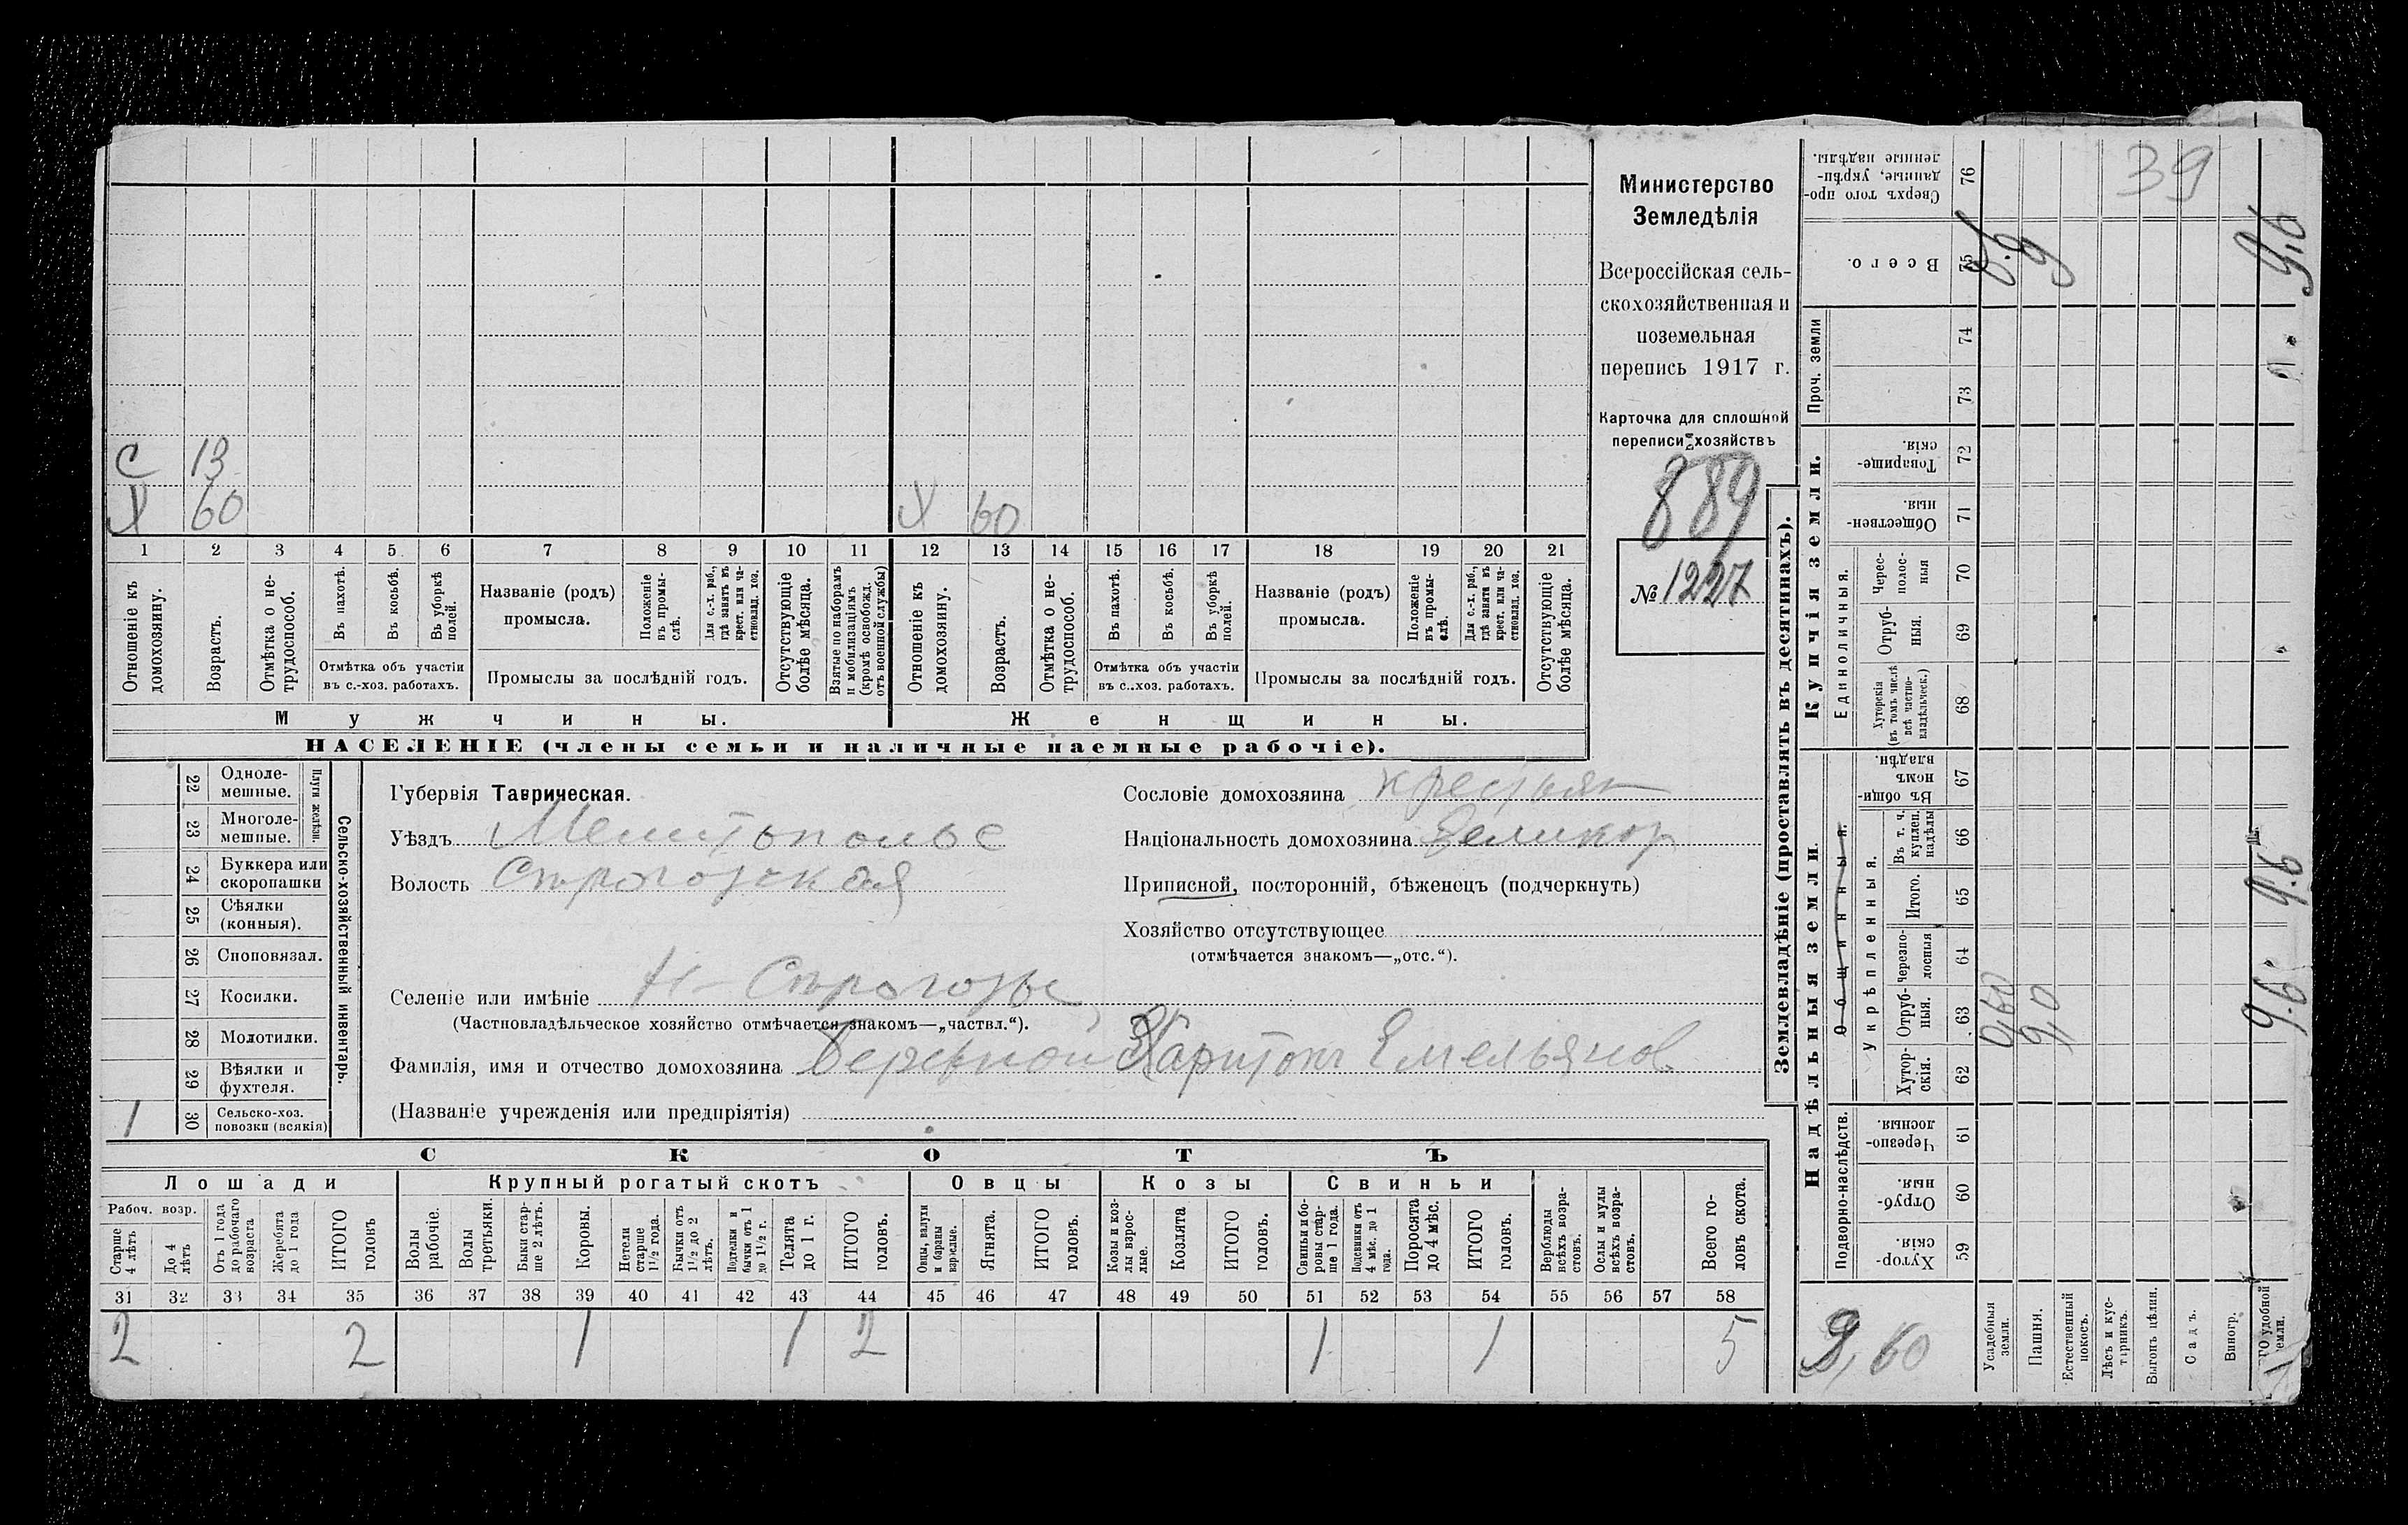 Министерство
Земледѣлія
Всероссійская сель-
скохозяйственная и
поземельная
перепись 1917 г.
Карточка для сплошной
переписи хозяйствъ
889
№ 1227
С 13
Х 60
Х 60
1 2 3 4 5 6 7 8 9 10 11 12 13 14 15 16 17 18 19 20 21
Отношеніе къ домохозяину.
Возрастъ.
Отмѣтка о не-трудоспособ.
Въ пахотѣ.
Въ косьбѣ.
Въ уборкѣ полей.
Отмѣтка объ участіи
въ с.-хоз. работахъ.
Названіе (родъ)
промысла.
Положеніе въ промы-слѣ.
Для с.-х. раб., гдѣ занятъ въ крест. или ча-стновлад. хоз.
Промыслы за послѣдній годъ.
Отсутствующіе болѣе мѣсяца.
Взятые по наборамъ и мобилизаціямъ (кромѣ освобожд. отъ военной службы)
Отношеніе къ домохозяину.
Возрастъ.
Отмѣтка о не-трудоспособ.
Въ пахотѣ.
Въ косьбѣ.
Въ уборкѣ полей.
Отмѣтка объ участіи
въ с.-хоз. работахъ.
Названіе (родъ)
промысла.
Положеніе въ промы-слѣ.
Для с.-х. раб., гдѣ занята въ крест. или ча-стновлад. хоз.
Промыслы за послѣдній годъ.
Отсутствующіе болѣе мѣсяца.
Мужчины.
Женщины.
НАСЕЛЕНІЕ (члены семьи и наличные наемные рабочіе).
22 Одноле-мешные.
23 Многоле-мешные.
Плуги желѣзн.
24 Буккера или скоропашки
25 Сѣялки (конныя).
26 Споповязал.
27 Косилки.
28 Молотилки.
29 Вѣялки и фухтеля.
1 30 Сельско-хоз. повозки (всякія)
Сельско-хозяйственный инвентарь.
Губернія Таврическая.
Уѣздъ Мелитополье
Волость Строгозская
Селеніе или имѣніе Н-Строгозы
(Частновладѣльческое хозяйство отмѣчается знакомъ—„частвл.“).
Фамилія, имя и отчество домохозяина Харитон Емельянов
(Названіе учрежденія или предпріятія)
Сословіе домохозяина крестьян
Національность домохозяина Великор
Приписной, посторонній, бѣженецъ (подчеркнуть)
Хозяйство отсутствующее
(отмѣчается знакомъ—„отс.“).
СКОТЪ
Лошади
Крупный рогатый скотъ
Овцы
Козы
Свиньи
Рабоч. возр.
Старше 4 лѣтъ
До 4 лѣтъ
Отъ 1 года до рабочаго возраста
Жеребята до 1 года
ИТОГО головъ
Волы рабочіе.
Волы третьяки.
Быки стар-ше 2 лѣтъ.
Коровы.
Нетели старше 1 1/2 года.
Бычки отъ 1 1/2 до 2 лѣтъ.
Подтелки и бычки отъ 1 до 1 1/2 г.
Телята до 1 г.
ИТОГО головъ.
Овцы, валухи и бараны взрослые.
Ягнята.
ИТОГО головъ.
Козы и коз-лы взрос-лые.
Козлята
ИТОГО головъ.
Свиньи и бо-ровы стар-ше 1 года.
Подсвинки отъ 4 мѣс. до 1 года.
Поросята до 4 мѣс.
ИТОГО головъ.
Верблюды всѣхъ возра-стовъ.
Ослы и мулы всѣхъ возра-стовъ.
Всего го-ловъ скота.
31 32 33 34 35 36 37 38 39 40 41 42 43 44 45 46 47 48 49 50 51 52 53 54 55 56 57 58
2 2 1 1 2 1 1 5
Землевладѣніе (проставлять въ десятинахъ).
Надѣльныя земли.
Купчія земли.
Проч. земли
Подворно-наслѣдств.
Общинныя.
Укрѣпленныя.
Единоличныя.
Хутор-скія. 59
Отруб-ныя. 60
Черезпо-лосныя. 61
Хутор-скія. 62
Отруб-ныя. 63
Черезпо-лосныя 64
Итого. 65
Въ т. ч. куплен. надѣлы 66
Въ общи-номъ владѣн. 67
Хуторскія (въ томъ числѣ всѣ частно-владѣльческ.) 68
Отруб-ныя. 69
Черес-полос-ныя 70
Обществен-ныя. 71
Товарище-скія. 72
73
74
Всего. 75
Сверхъ того про-данные, укрѣп-ленные надѣлы. 76
39
Усадебныя земли.
Пашня.
Естественный покосъ.
Лѣсъ и кус-тарникъ.
Выгонъ цѣлин.
Садъ.
Виногр.
0,60
9,0
9.6
9.6
0.6
9
9,6
9,60